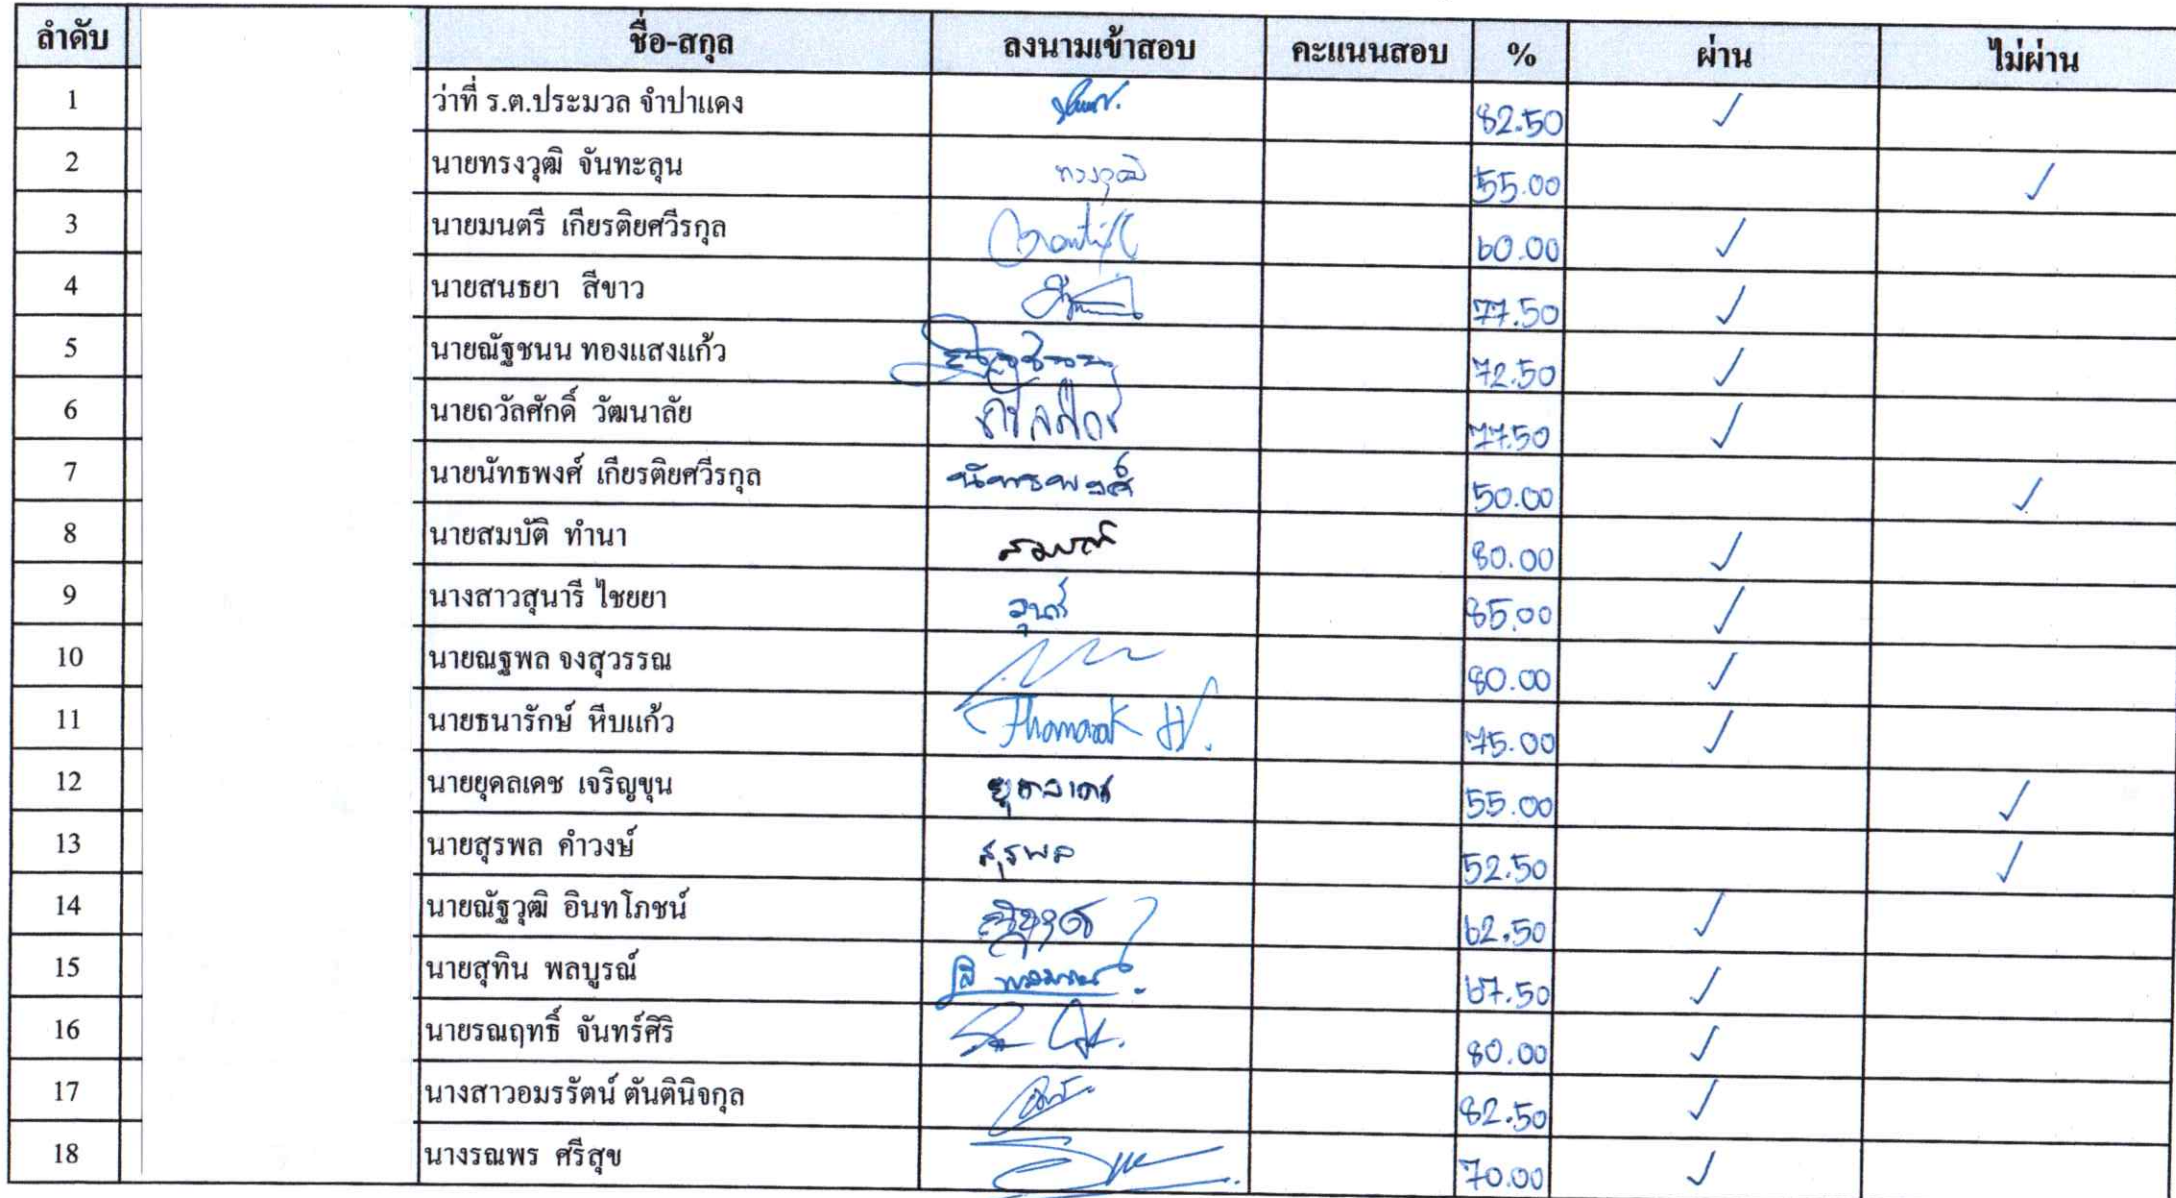 ลำดับ ชื่อ-สกุล ลงนามเข้าสอบ คะแนนสอบ % ผ่าน ไม่ผ่าน
1 ว่าที่ ร.ต.ประมวล จำปาแดง 82.50 ✓
2 นายทรงวุฒิ จันทะลุน ทรงวุฒิ 55.00 ✓
3 นายมนตรี เกียรติยศวีรกุล 60.00 ✓
4 นายสนธยา สีขาว 77.50 ✓
5 นายณัฐชนน ทองแสงแก้ว ณัฐชนน 72.50 ✓
6 นายถวัลศักดิ์ วัฒนาลัย 77.50 ✓
7 นายนัทธพงศ์ เกียรติยศวีรกุล นัทธพงศ์ 50.00 ✓
8 นายสมบัติ ทำนา สมบัติ 80.00 ✓
9 นางสาวสุนารี ไชยยา 85.00 ✓
10 นายณฐพล จงสุวรรณ 80.00 ✓
11 นายธนารักษ์ หีบแก้ว Thanarak H. 75.00 ✓
12 นายยุคลเดช เจริญขุน ยุคลเดช 55.00 ✓
13 นายสุรพล คำวงษ์ สุรพล 52.50 ✓
14 นายณัฐวุฒิ อินทโภชน์ ณัฐวุฒิ 62.50 ✓
15 นายสุทิน พลบูรณ์ 67.50 ✓
16 นายรณฤทธิ์ จันทร์ศิริ 80.00 ✓
17 นางสาวอมรรัตน์ ตันตินิจกุล 82.50 ✓
18 นางรณพร ศรีสุข 70.00 ✓